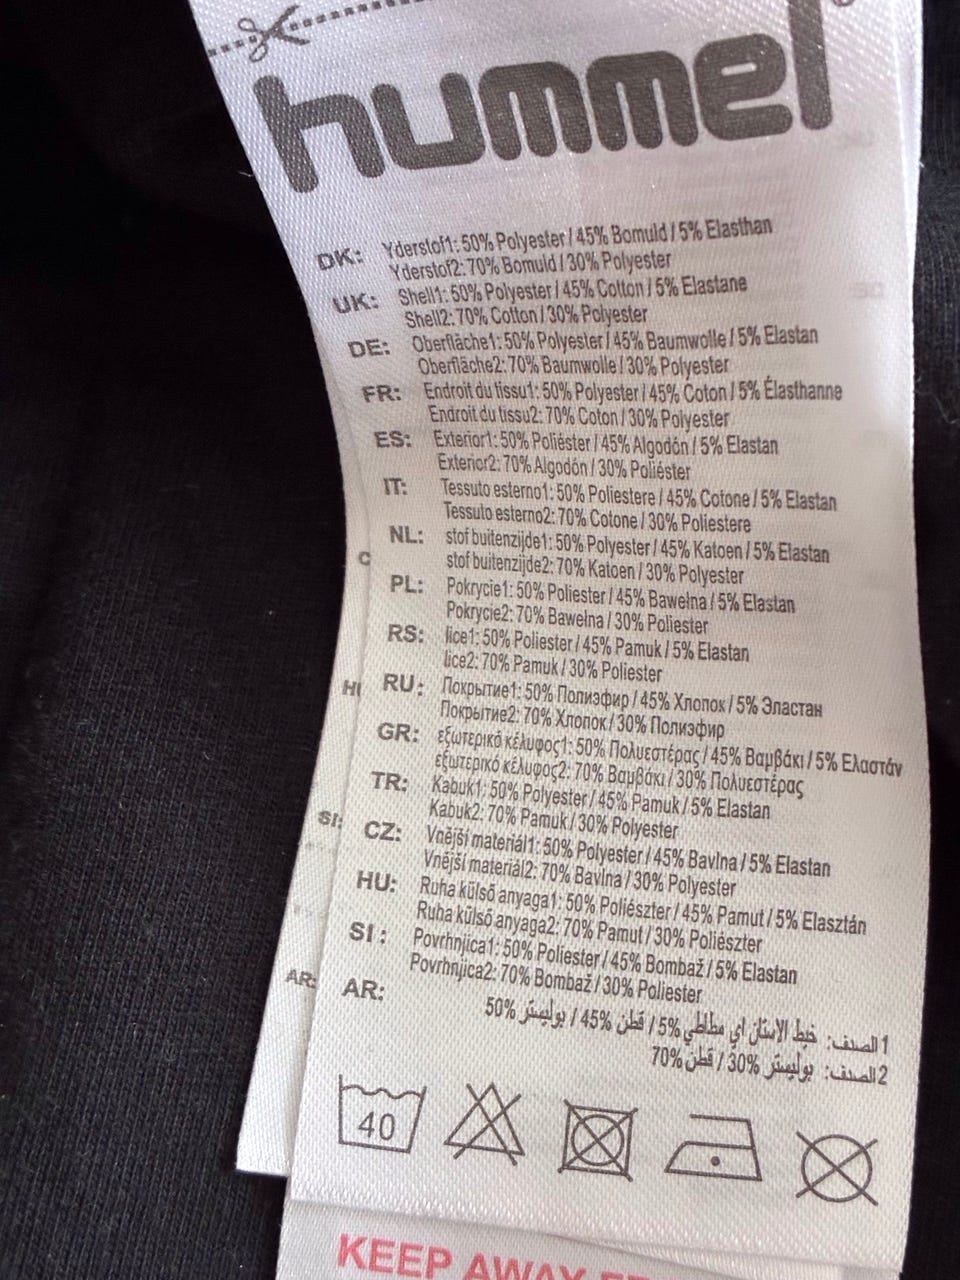 hummel
DK: Yderstof1: 50% Polyester / 45% Bomuld / 5% Elasthan
Yderstof2: 70% Bomuld / 30% Polyester
UK: Shell1: 50% Polyester / 45% Cotton / 5% Elastane
Shell2: 70% Cotton / 30% Polyester
DE: Oberfläche1: 50% Polyester / 45% Baumwolle / 5% Elastan
Oberfläche2: 70% Baumwolle / 30% Polyester
FR: Endroit du tissu1: 50% Polyester / 45% Coton / 5% Élasthanne
Endroit du tissu2: 70% Coton / 30% Polyester
ES: Exterior1: 50% Poliéster / 45% Algodón / 5% Elastan
Exterior2: 70% Algodón / 30% Poliéster
IT: Tessuto esterno1: 50% Poliestere / 45% Cotone / 5% Elastan
Tessuto esterno2: 70% Cotone / 30% Poliestere
NL: stof buitenzijde1: 50% Polyester / 45% Katoen / 5% Elastan
stof buitenzijde2: 70% Katoen / 30% Polyester
PL: Pokrycie1: 50% Poliester / 45% Bawełna / 5% Elastan
Pokrycie2: 70% Bawełna / 30% Poliester
RS: lice1: 50% Poliester / 45% Pamuk / 5% Elastan
lice2: 70% Pamuk / 30% Poliester
RU: Покрытие1: 50% Полиэфир / 45% Хлопок / 5% Эластан
Покрытие2: 70% Хлопок / 30% Полиэфир
GR: εξωτερικό κέλυφος1: 50% Πολυεστέρας / 45% Βαμβάκι / 5% Ελαστάν
εξωτερικό κέλυφος2: 70% Βαμβάκι / 30% Πολυεστέρας
TR: Kabuk1: 50% Polyester / 45% Pamuk / 5% Elastan
Kabuk2: 70% Pamuk / 30% Polyester
CZ: Vnější materiál1: 50% Polyester / 45% Bavlna / 5% Elastan
Vnější materiál2: 70% Bavlna / 30% Polyester
HU: Ruha külső anyaga1: 50% Poliészter / 45% Pamut / 5% Elasztán
Ruha külső anyaga2: 70% Pamut / 30% Poliészter
SI: Povrhnjica1: 50% Poliester / 45% Bombaž / 5% Elastan
Povrhnjica2: 70% Bombaž / 30% Poliester
AR: 1الصدف: خيط الاستان اي مطاطي 5% / قطن 45% / بوليستر 50%
2الصدف: بوليستر 30% / قطن 70%
40
KEEP AWAY
SI:
AR: